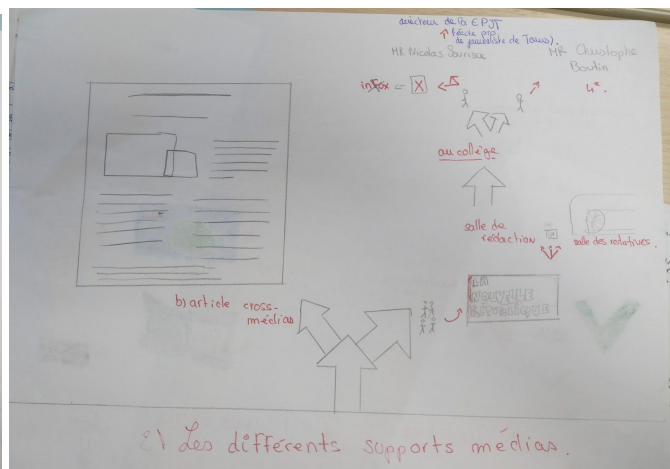 directeur de la EPJT
(école pro
de journaliste de Tours).
MR Nicolas Sourisce
MR Christophe
Boutin
infox = X
4e.
au collège
salle de
rédaction
salle des rotatives.
LA
NOUVELLE
RÉPUBLIQUE
b) article cross-
médias
2) Les différents supports médias.